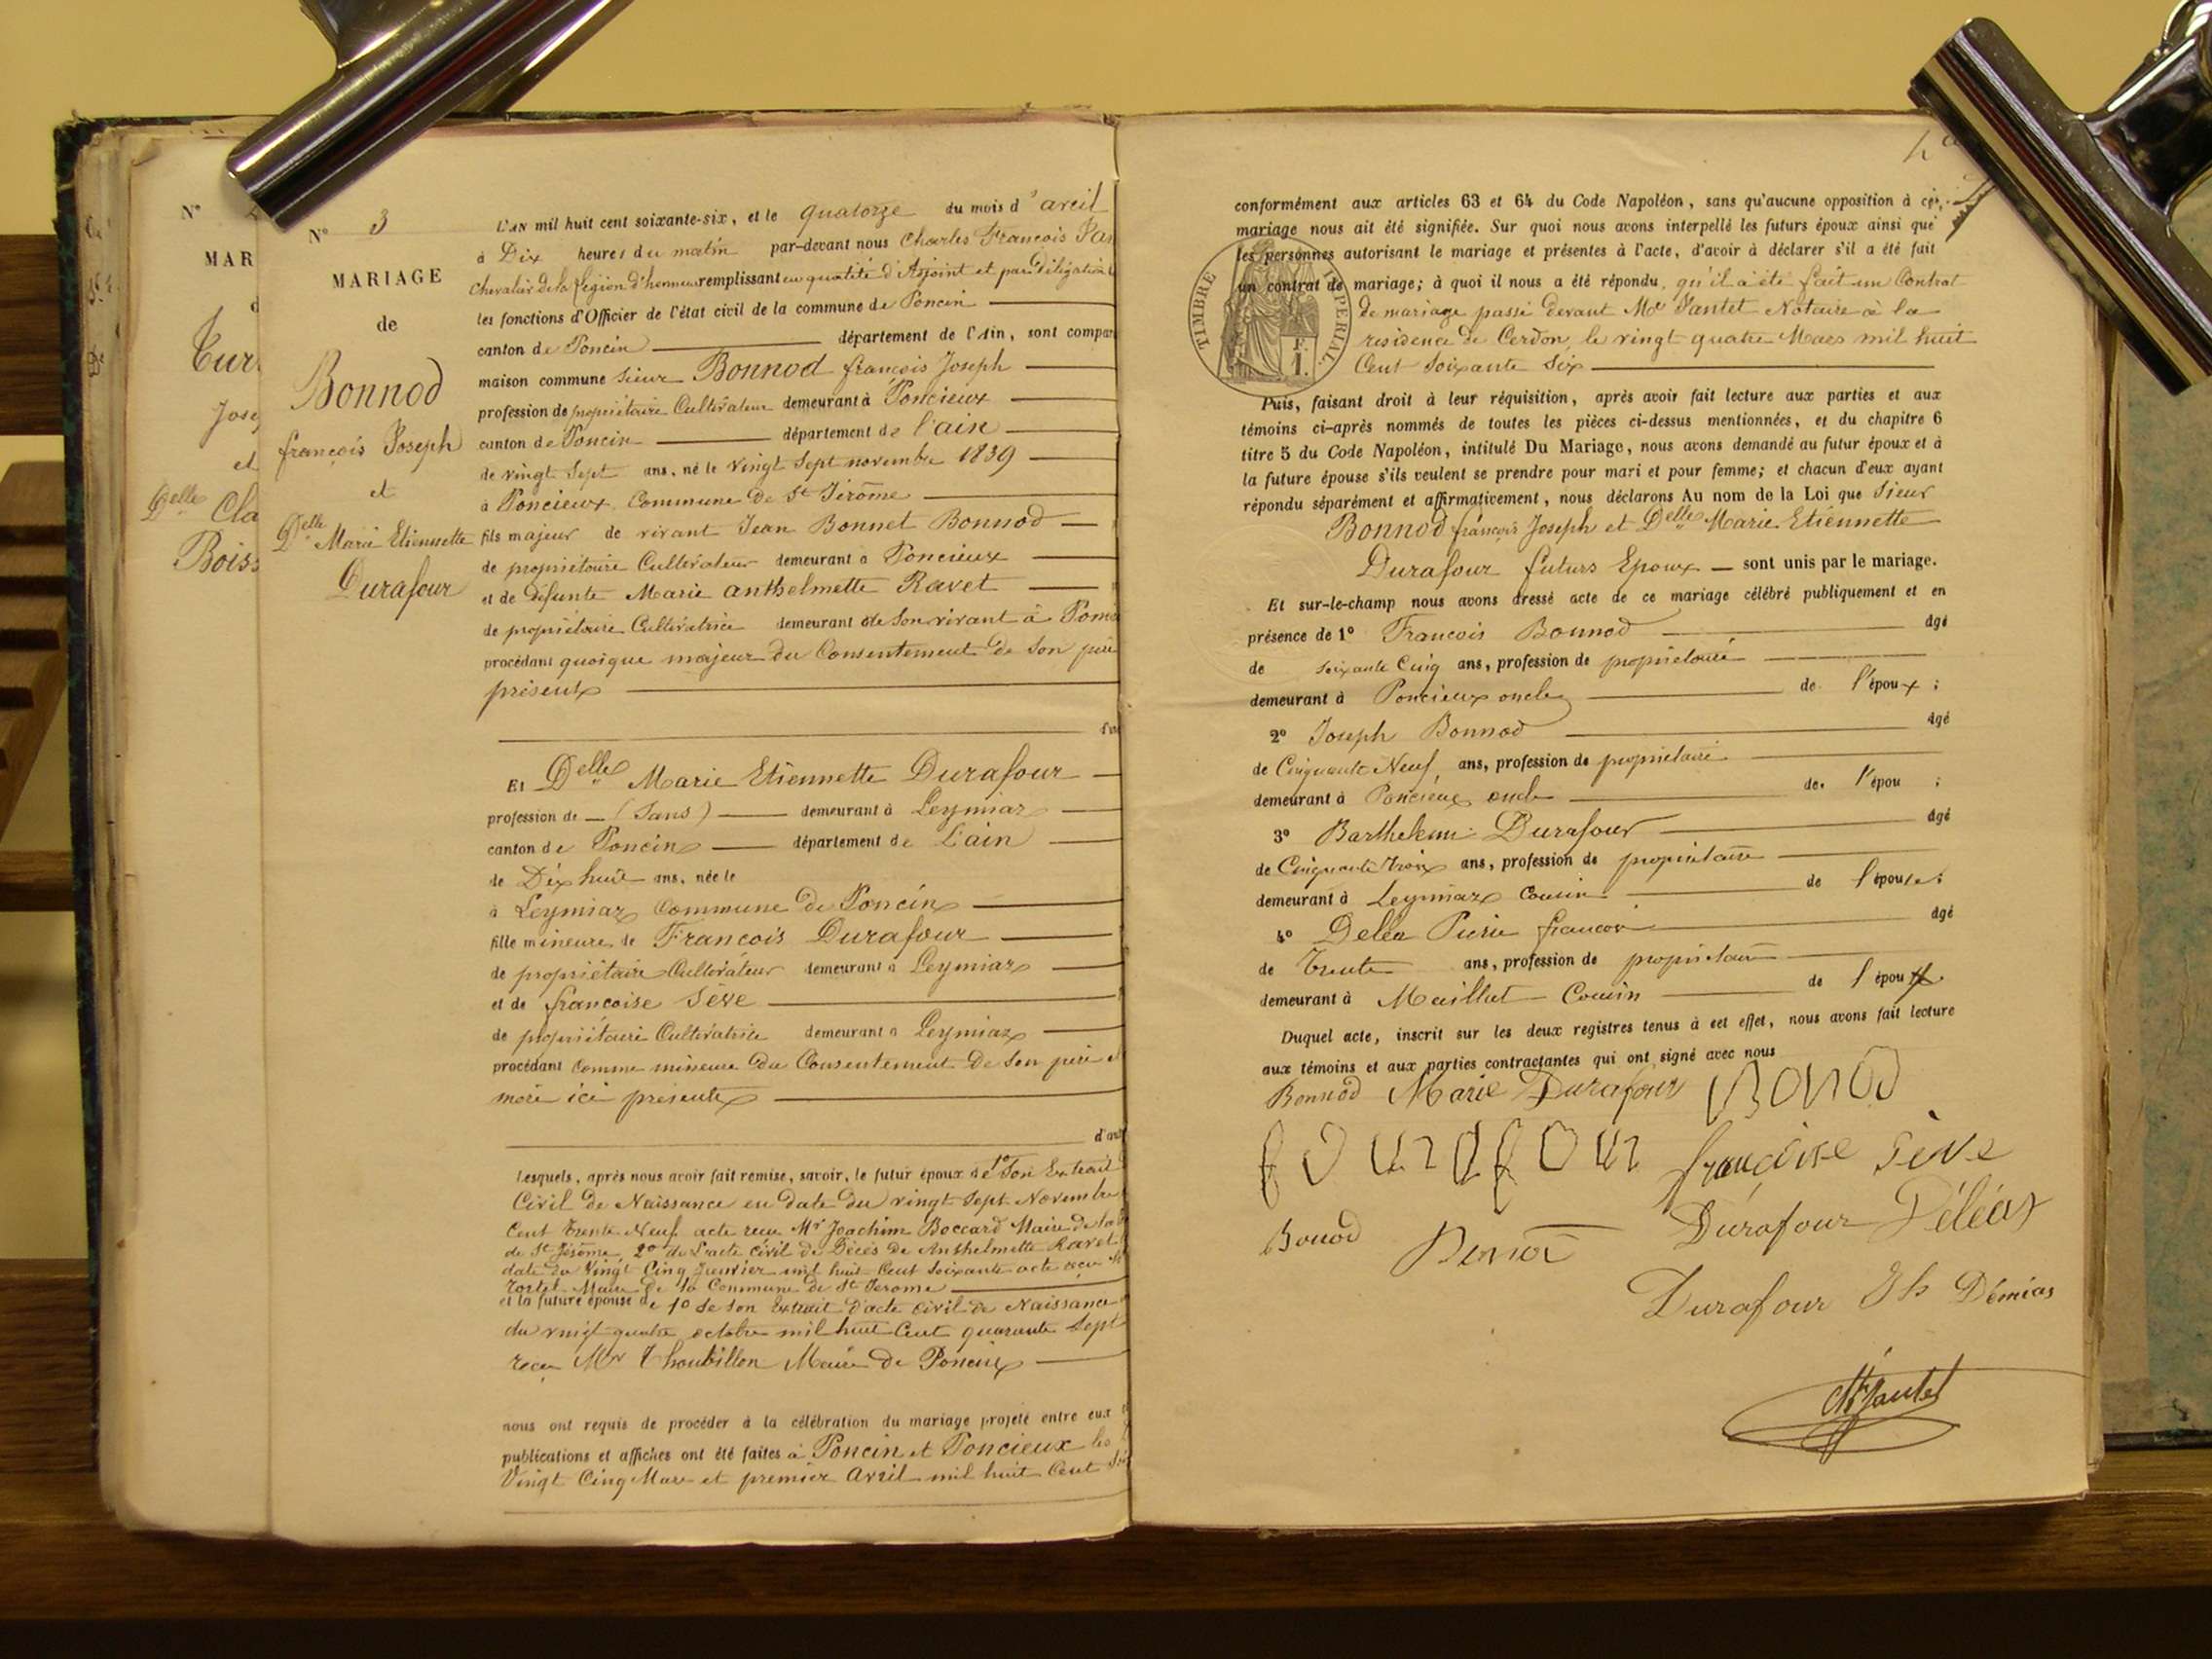 N°
MAR
Jose
et
Delle Cla
Boiss
N° 3
MARIAGE
de
Bonnod
françois Joseph
et
Delle Marie Etiennette
Durafour
L'AN mil huit cent soixante-six, et le quatorze du mois d'avril
à Dix heures du matin par-devant nous Charles François
chevalier de la Légion d'honneur remplissant en qualité d'Adjoint et par Délégation
les fonctions d'Officier de l'état civil de la commune de Poncin
canton de Poncin département de l'Ain, sont compar
maison commune Sieur Bonnod françois Joseph
profession de propriétaire Cultivateur demeurant à Poncieux
canton de Poncin département de l'ain
de vingt Sept ans, né le vingt Sept novembre 1839
à Poncieux Commune de St Jérôme
fils majeur de vivant Jean Bonnet Bonnod
de propriétaire Cultivateur demeurant à Poncieux
et de défunte Marie anthelmette Ravet
de propriétaire Cultivatrice demeurant de Son vivant à
procédant quoique majeur du Consentement de Son père
présent
Et Delle Marie Etiennette Durafour
profession de (Sans) demeurant à Leymiaz
canton de Poncin département de L'ain
de Dix huit ans, née le
à Leymiaz Commune de Poncin
fille mineure de François Durafour
de propriétaire Cultivateur demeurant à Leymiaz
et de françoise Sève
de propriétaire Cultivatrice demeurant à Leymiaz
procédant Comme mineure du Consentement de Son père et
mère ici présents
Lesquels, après nous avoir fait remise, savoir, le futur époux de 1° Son Extrait
Civil de Naissance en date du vingt Sept Novembre
Cent trente Neuf acte reçu Mr Joachim Boccard Maire de la
de St Jérôme, 2° de L'acte civil de Décès de Anthelmette Ravet
date du Vingt Cinq Janvier mil huit Cent Soixante acte reçu
Tortel Maire de la Commune de St Jerome
et la future épouse de 1° de son Extrait d'acte civil de Naissance
du vingt quatre octobre mil huit Cent quarante Sept
reçu Mr Thoubillon Maire de Poncin
nous ont requis de procéder à la célébration du mariage projeté entre eux
publications et affiches ont été faites à Poncin et Poncieux les
Vingt Cinq Mars et premier Avril mil huit Cent
conformément aux articles 63 et 64 du Code Napoléon, sans qu'aucune opposition à ce
mariage nous ait été signifiée. Sur quoi nous avons interpellé les futurs époux ainsi que
les personnes autorisant le mariage et présentes à l'acte, d'avoir à déclarer s'il a été fait
un contrat de mariage; à quoi il nous a été répondu, qu'il a été fait un Contrat
de mariage passé devant Me Jantet Notaire à la
résidence de Cerdon, le vingt quatre Mars mil huit
Cent Soixante Six
TIMBRE IMPERIAL
F.
1.
Puis, faisant droit à leur réquisition, après avoir fait lecture aux parties et aux
témoins ci-après nommés de toutes les pièces ci-dessus mentionnées, et du chapitre 6
titre 5 du Code Napoléon, intitulé Du Mariage, nous avons demandé au futur époux et à
la future épouse s'ils veulent se prendre pour mari et pour femme; et chacun d'eux ayant
répondu séparément et affirmativement, nous déclarons Au nom de la Loi que Sieur
Bonnod françois Joseph et Delle Marie Etiennette
Durafour futurs Epoux sont unis par le mariage.
Et sur-le-champ nous avons dressé acte de ce mariage célébré publiquement et en
présence de 1° François Bonnod âgé
de soixante Cinq ans, profession de propriétaire
demeurant à Poncieux oncle de l'époux;
2° Joseph Bonnod âgé
de Cinquante Neuf ans, profession de propriétaire
demeurant à Poncieux oncle de l'épou;
3° Barthelemi Durafour âgé
de Cinquante trois ans, profession de propriétaire
demeurant à Leymiaz Cousin de l'épouse;
4° Deléa Pierre françois âgé
de Trente ans, profession de propriétaire
demeurant à Maillat Cousin de l'époux
Duquel acte, inscrit sur les deux registres tenus à cet effet, nous avons fait lecture
aux témoins et aux parties contractantes qui ont signé avec nous
Bonnod Marie Durafour BONOD
françoise Sève
Bonod Durafour
Durafour
Jantet